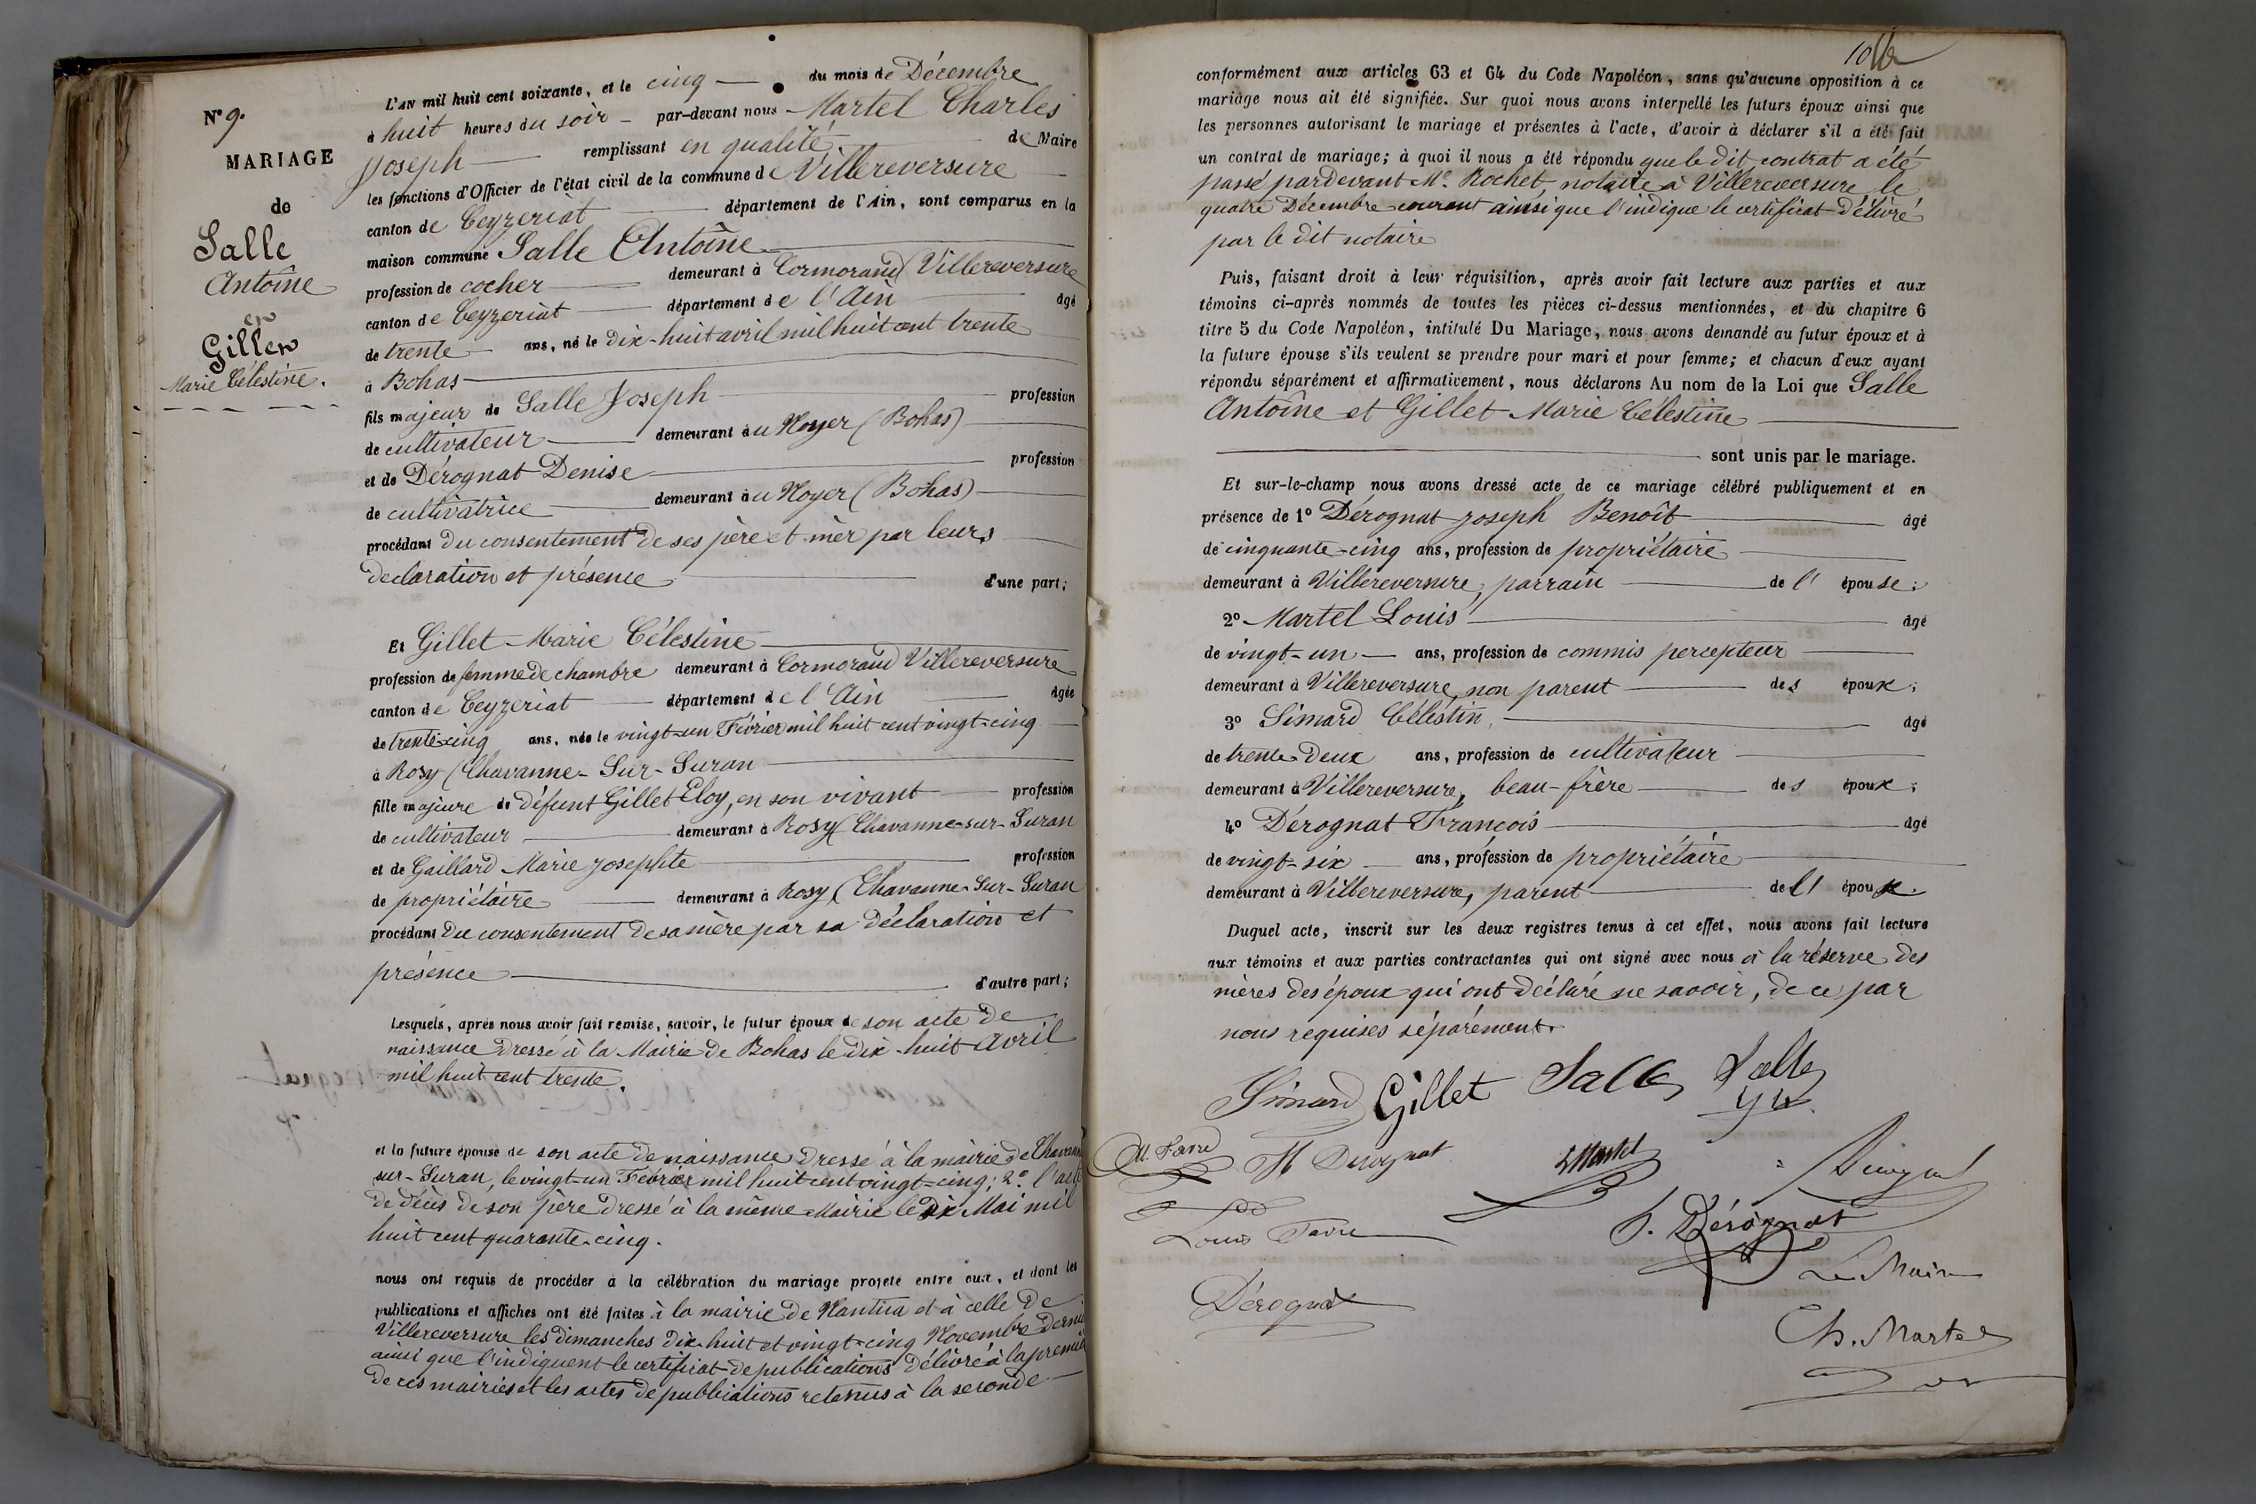 N° 9.
MARIAGE
de
Salle
Antoîne
et
Gillet
Marie Célestine.
L'AN mil huit cent soixante, et le cinq du mois de Décembre
à huit heures du soir par-devant nous Martel Charles
Joseph remplissant en qualité de Maire
les fonctions d'Officier de l'état civil de la commune de Villereversure
canton de Ceyzeriat département de l'Ain, sont comparus en la
maison commune Salle Antoîne
profession de cocher demeurant à Cormorand (Villereversure
canton de Ceyzeriat département de l'Ain âgé
de trente ans, né le dix-huit avril mil huit cent trente
à Bohas
fils majeur de Salle Joseph profession
de cultivateur demeurant au Noyer (Bohas)
et de Dérognat Denise profession
de cultivatrice demeurant au Noyer (Bohas)
procédant du consentement de ses père et mèr par leurs
declaration et présence d'une part;
Et Gillet Marie Célestine
profession de femme de chambre demeurant à Cormorand Villereversure
canton de Ceyzeriat département de l'Ain âgée
de trente-cinq ans, née le vingt-un Février mil huit cent vingt-cinq
à Rosy (Chavanne-Sur-Suran
fille majeure de défunt Gillet Eloy, en son vivant profession
de cultivateur demeurant à Rosy (Chavanne-sur-Suran
et de Gaillard Marie Josephte profession
de propriétaire demeurant à Rosy (Chavanne-Sur-Suran
procédant du consentement de sa mère par sa déclaration et
présence d'autre part;
Lesquels, après nous avoir fait remise, savoir, le futur époux de son acte de
naissance dressé à la Mairie de Bohas le dix-huit Avril
mil huit cent trente.
et la future épouse de son acte de naissance dressé à la mairie de Chavanne
sur-Suran, le vingt-un Février mil huit cent vingt-cinq; 2° l'acte
de décès de son père dressé à la même Mairie le dix Mai mil
huit cent quarante-cinq.
nous ont requis de procéder à la célébration du mariage projeté entre eux, et dont les
publications et affiches ont été faites à la mairie de Nantua et à celle de
Villereversure les dimanches dix-huit et vingt-cinq Novembre dernier
ainsi que l'indiquent le certificat de publications délivré à la première
de ces mairies et les actes de publications retenus à la seconde
10
conformément aux articles 63 et 64 du Code Napoléon, sans qu'aucune opposition à ce
mariage nous ait été signifiée. Sur quoi nous avons interpellé les futurs époux ainsi que
les personnes autorisant le mariage et présentes à l'acte, d'avoir à déclarer s'il a été fait
un contrat de mariage; à quoi il nous a été répondu que le dit contrat a été
passé pardevant Me. Rochet, notaire à Villereversure le
quatre Décembre courant ainsi que l'indique le certificat délivré
par le dit notaire
Puis, faisant droit à leur réquisition, après avoir fait lecture aux parties et aux
témoins ci-après nommés de toutes les pièces ci-dessus mentionnées, et du chapitre 6
titre 5 du Code Napoléon, intitulé Du Mariage, nous avons demandé au futur époux et à
la future épouse s'ils veulent se prendre pour mari et pour femme; et chacun d'eux ayant
répondu séparément et affirmativement, nous déclarons Au nom de la Loi que Salle
Antoîne et Gillet Marie Célestine
sont unis par le mariage.
Et sur-le-champ nous avons dressé acte de ce mariage célébré publiquement et en
présence de 1° Dérognat Joseph Benoît âgé
de cinquante-cinq ans, profession de propriétaire
demeurant à Villereversure, parrain de l' épouse;
2° Martel Louis âgé
de vingt-un ans, profession de commis percepteur
demeurant à Villereversure, non parent des époux;
3° Simard Célestin, âgé
de trente-deux ans, profession de cultivateur
demeurant à Villereversure, beau-frère des époux;
4° Dérognat François âgé
de vingt-six ans, profession de propriétaire
demeurant à Villereversure, parent de l' époux.
Duquel acte, inscrit sur les deux registres tenus à cet effet, nous avons fait lecture
aux témoins et aux parties contractantes qui ont signé avec nous à la réserve des
mères des époux qui ont déclaré ne savoir, de ce par
nous requises séparément.
Simard Gillet Salle Salle
M. Favre Dérognat L Martel
Louis Favre F. Dérognat
Le Maire
Dérognat
Ch. Martel